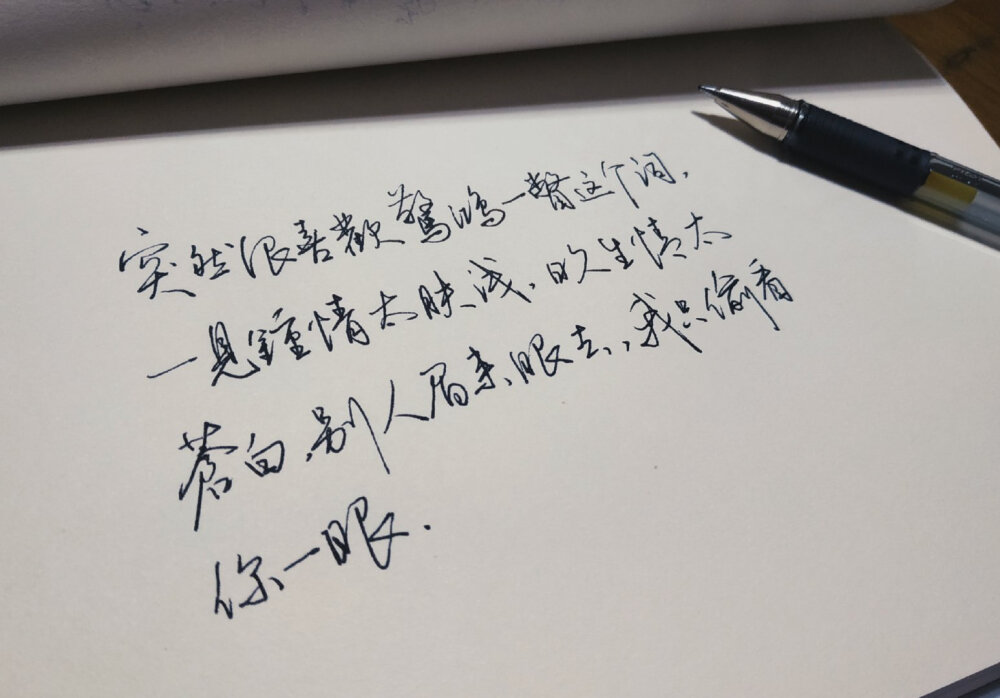 突然很喜歡驚鴻一瞥这个词,
一見鍾情太肤浅,日久生情太
蒼白,别人眉来眼去,我只偷看
你一眼.